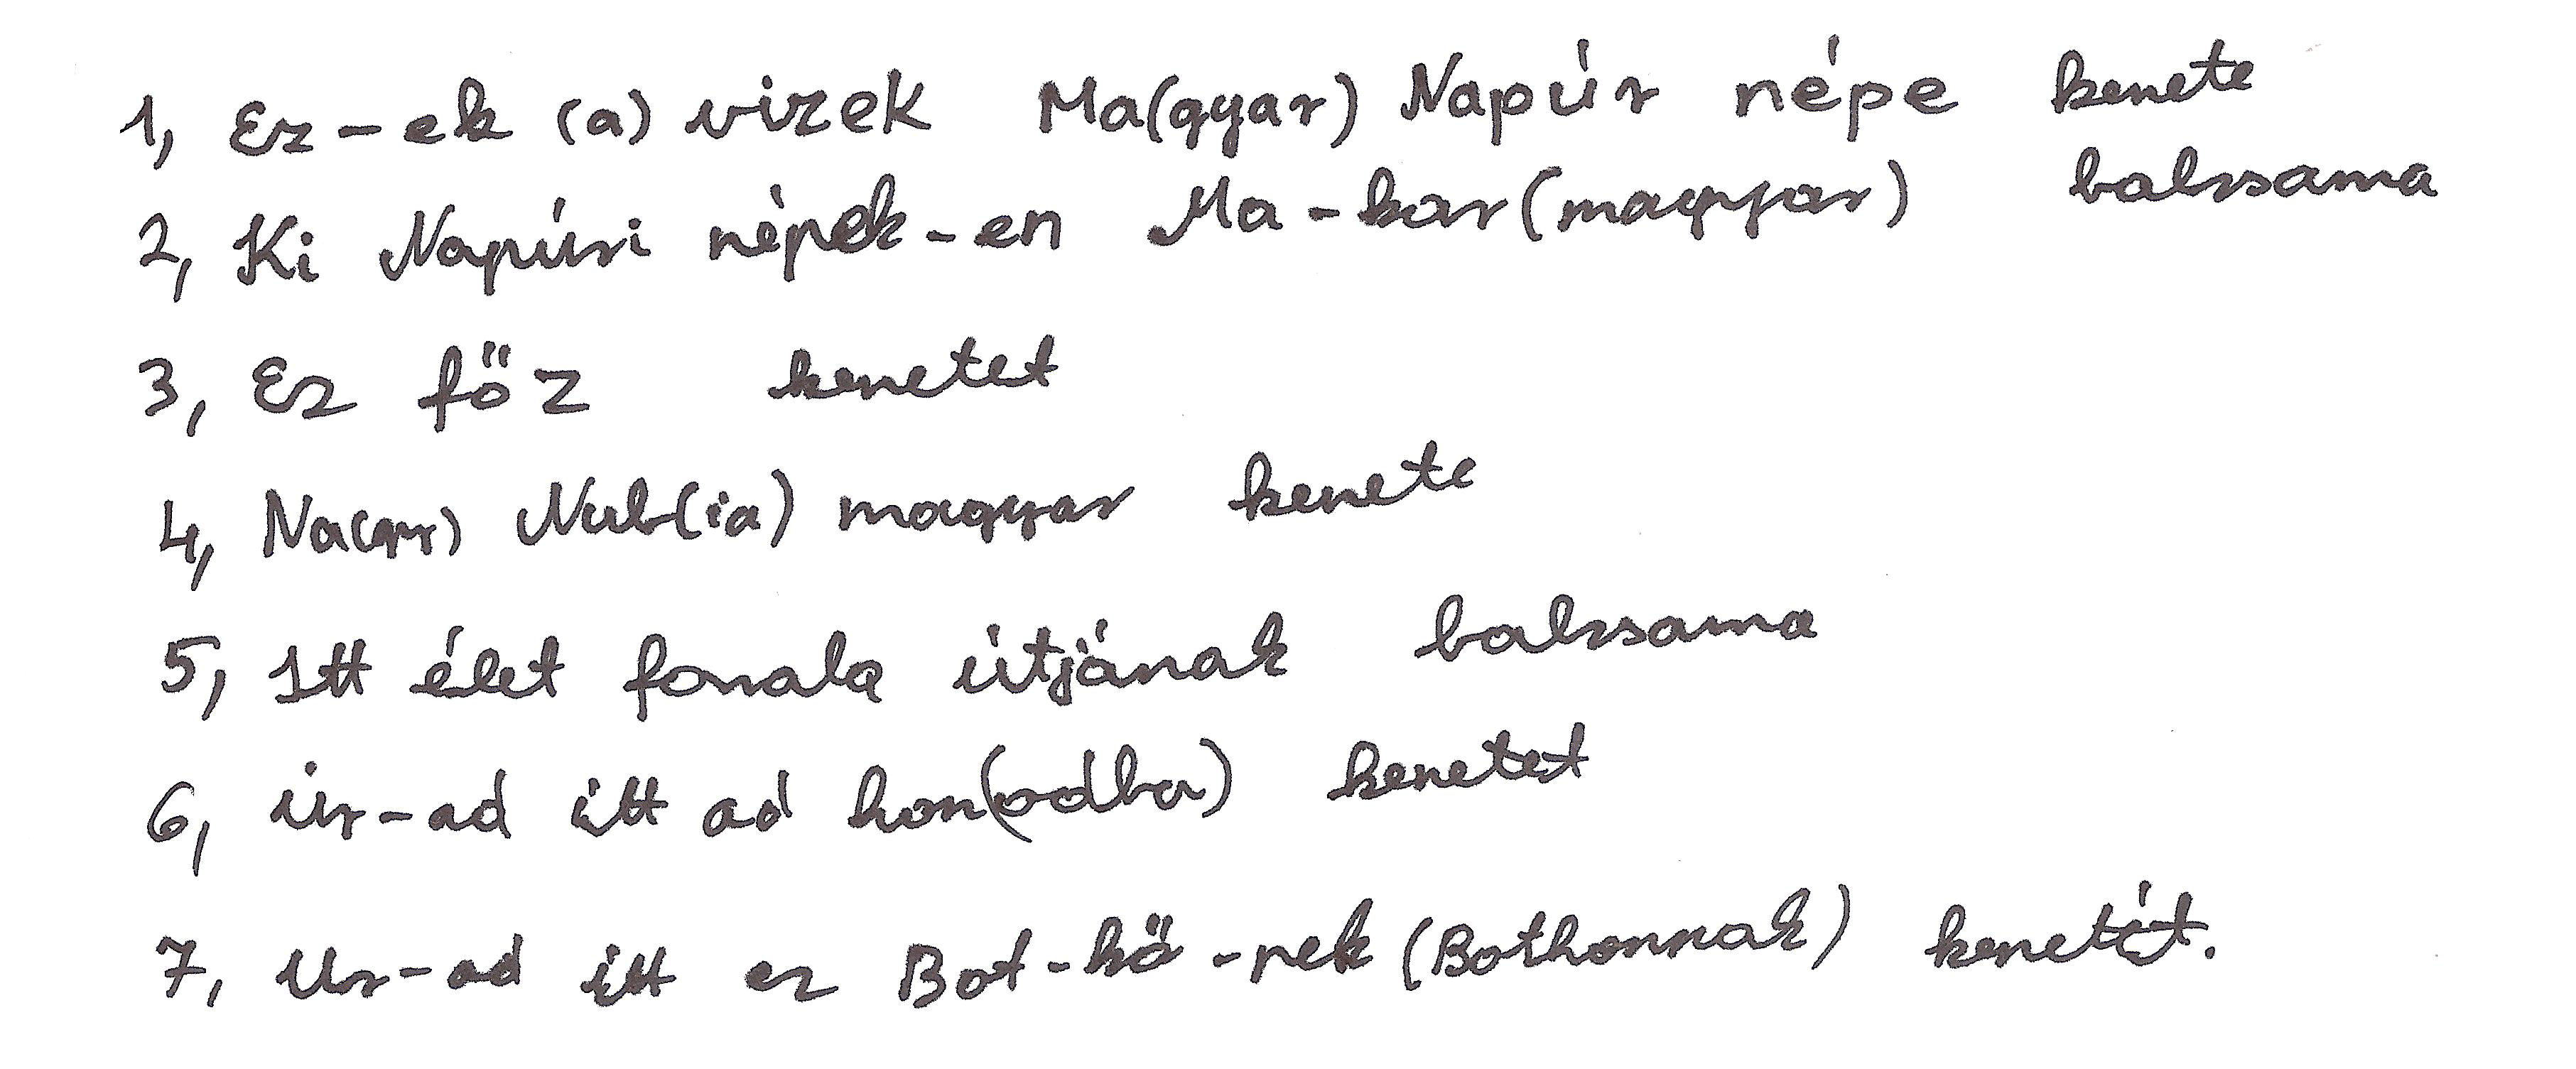 1, Ez-ek (a) vizek Ma(gyar) Napúr népe kenete
2, Ki Napúri népek-en Ma-kar(magyar) balzsama
3, Ez főz kenetet
4, Na(gy) Nub(ia) magyar kenete
5, Itt élet fonala útjának balzsama
6, úr-ad itt ad hon(odba) kenetet
7, Ur-ad itt ez Bot-kő-nek (Bothonnak) kenetét.